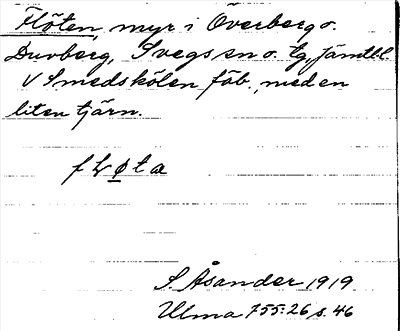 Flöten, myr i Överberg o.
Duvberg, Svegs sn o. tg, Jämtl.l
V Smedskölen fäb., med en
liten tjärn.
S Åsander 1919
Ulma 755:26 s. 46